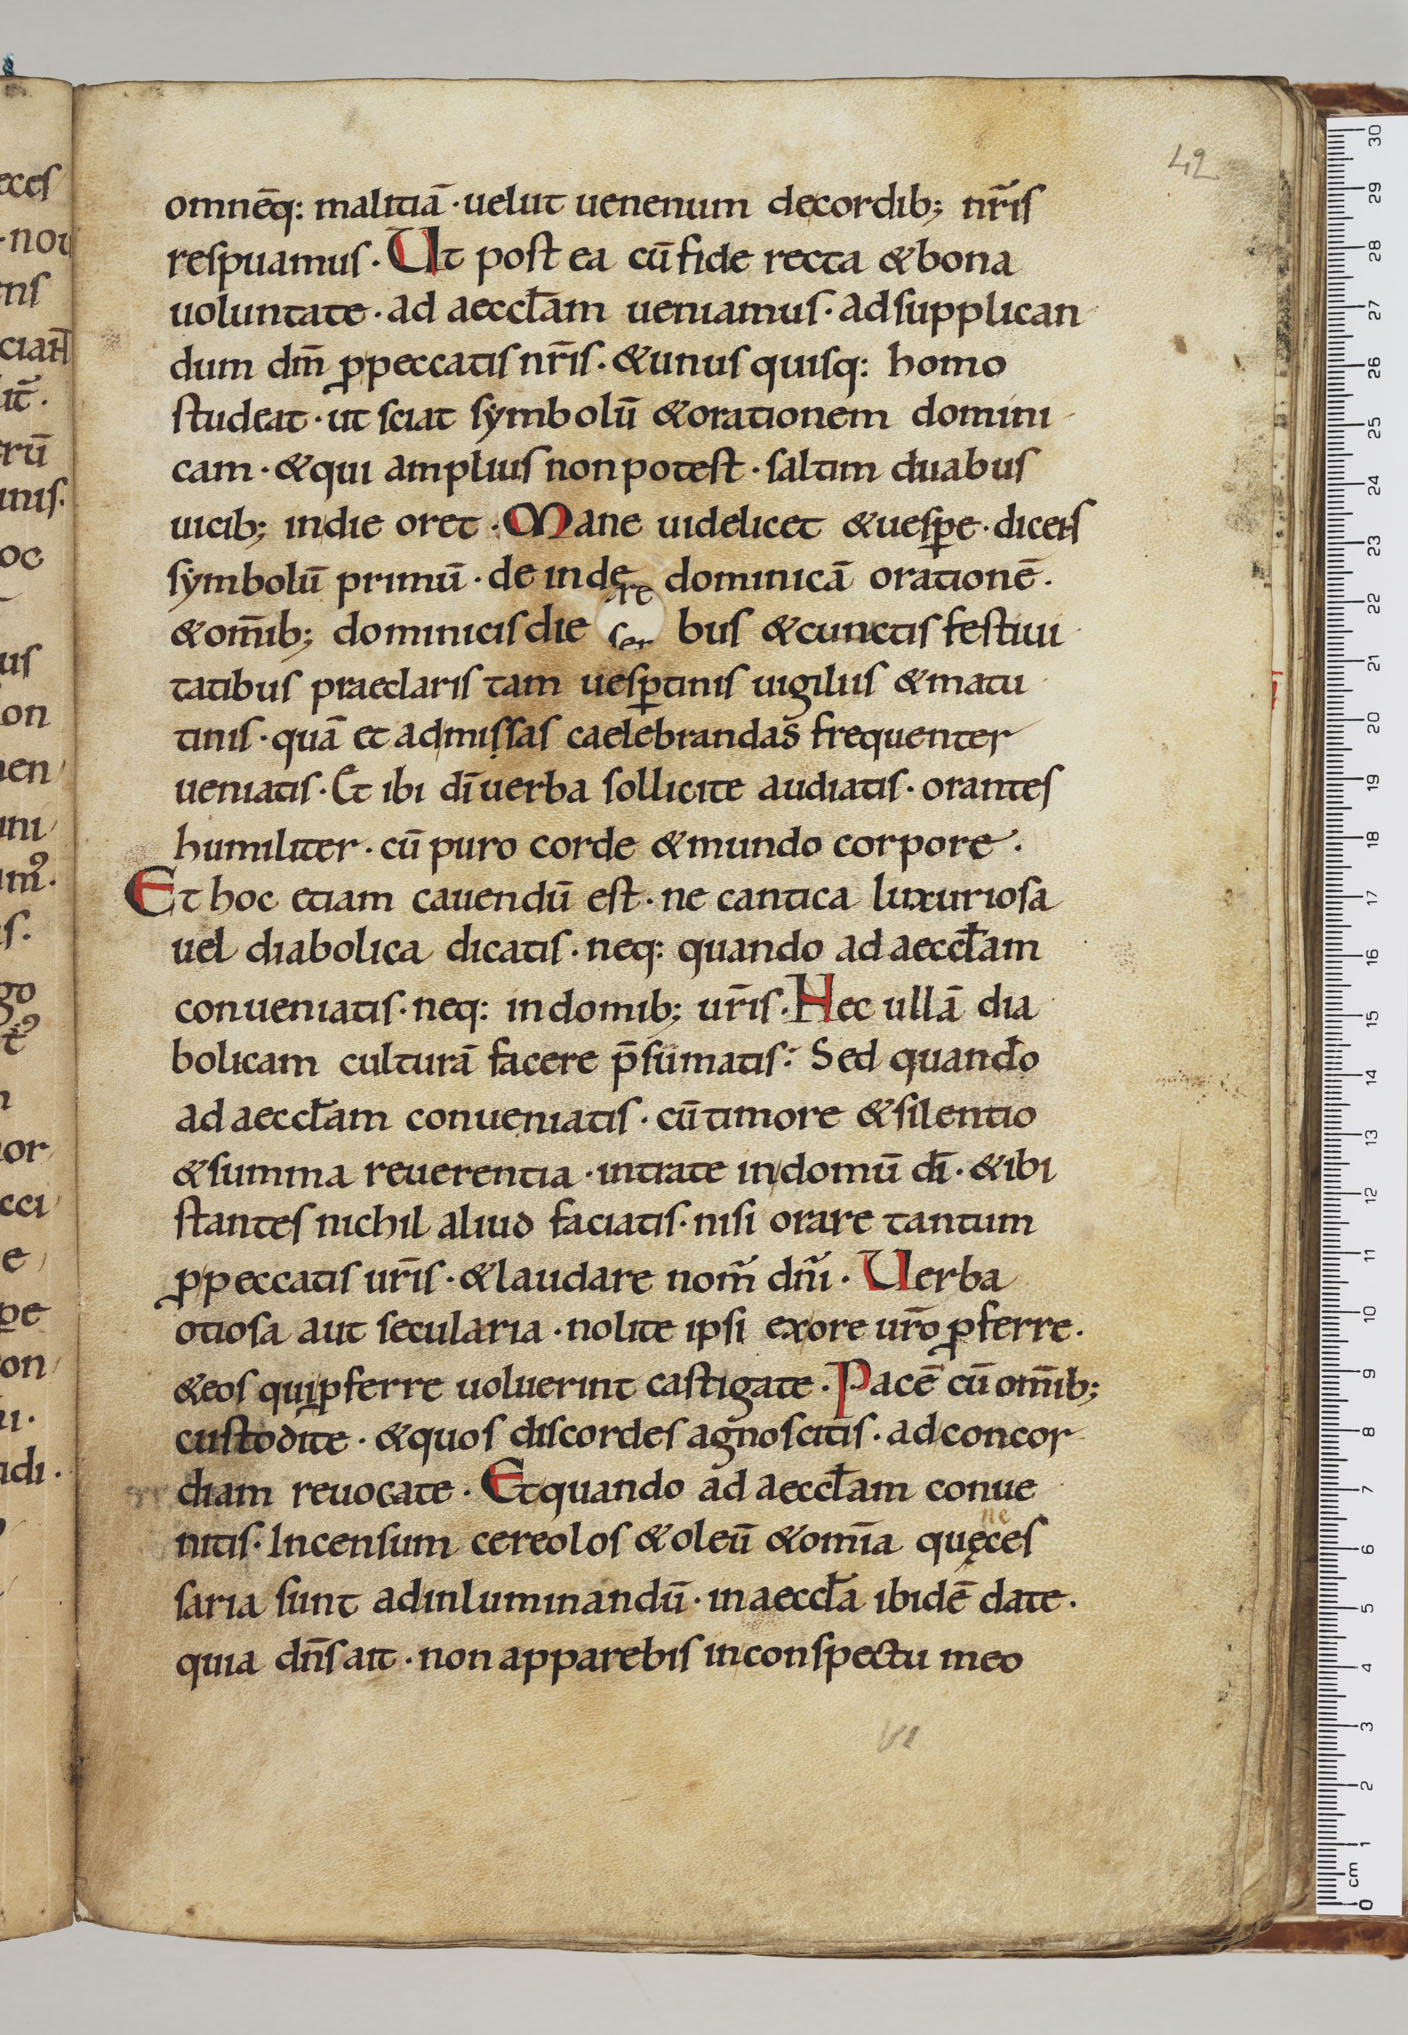 42
omnēq: malitiā · uelut uenenum decordib; nr̄is
respuamus · Ut post ea cū fide recta & bona
uoluntate · ad aeccłam ueniamus · ad supplican
dum dm̄ ꝓpeccatis nr̄is · & unus quisq: homo
studeat · ut sciat sẏmbolū & orationem domini
cam · & qui amplius non potest · saltim duabus
uicib; in die oret · Mane uidelicet & uesꝑe · dicens
sẏmbolū primū · de inde dominicā orationē ·
& om̄ib; dominicis die bus & cunctis festiui
tatibus praeclaris tam uesꝑtinis uigiliis & matu
tinis · quā et admissas caelebrandas frequenter
ueniatis · Et ibi dī uerba sollicite audiatis · orantes
humiliter · cū puro corde & mundo corpore ·
Et hoc etiam cauendū est · ne cantica luxuriosa
uel diabolica dicatis · neq: quando ad aeccłam
conueniatis · neq: in domib; ur̄is · Nec ullā dia
bolicam culturā facere p̄sumatis : Sed quando
ad aeccłam conueniatis · cū timore & silentio
& summa reuerentia · intrate in domū dī · & ibi
stantes nichil aliud faciatis · nisi orare tantum
ꝓpeccatis ur̄is · & laudare nom̄ dn̄i · Uerba
otiosa aut secularia · nolite ipsi exore ur̄o ꝓferre ·
& eos qui ꝓferre uoluerint castigate · Pacē cū om̄ib;
custodite · & quos discordes agnoscitis · ad concor
diam reuocate · Et quando ad aeccłam conue
nitis · Incensum cereolos & oleū & om̄ia quę neces
saria sunt ad inluminandū · in aeccła ibidē date ·
quia dn̄s ait · non apparebis in conspectu meo
VI